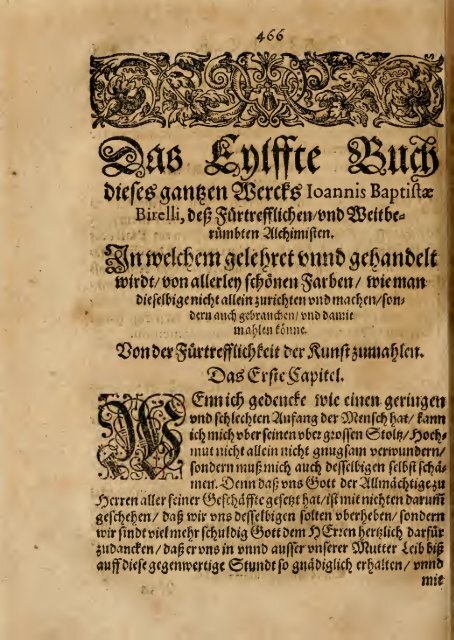 466
Das Eylffte Buch
dieses gantzen Wercks Ioannis Baptistæ
Birelli, deß Fürtrefflichen/ vnd Weitbe-
rümbten Alchimisten.
In welchem gelehret vnnd gehandelt
wirdt/ von allerley schönen Farben/ wie man
dieselbige nicht allein zurichten vnd machen/ son-
dern auch gebrauchen/ vnd damit
mahlen könne.
Von der Fürtrefflichkeit der Kunst zumahlen.
Das Erste Capitel.
WEnn ich gedencke wie einen geringen
vnd schlechten Anfang der Mensch hat/ kann
ich mich vber seinen vber grossen Stoltz/ Hoch-
mut nicht allein nicht gnugsam verwundern/
sondern muß mich auch desselbigen selbst schä-
men. Denn daß vns Gott der Allmächtige zu
Herren aller seiner Geschäffte gesetzt hat/ ist mit nichten darumb
geschehen/ daß wir vns desselbigen solten vberheben/ sondern
wir sindt viel mehr schuldig Gott dem HErren hertzlich darfür
zudancken/ daß er vns in vnnd ausser vnserer Mutter Leib biß
auff diese gegenwertige Stundt so gnädiglich erhalten/ vnnd
mit